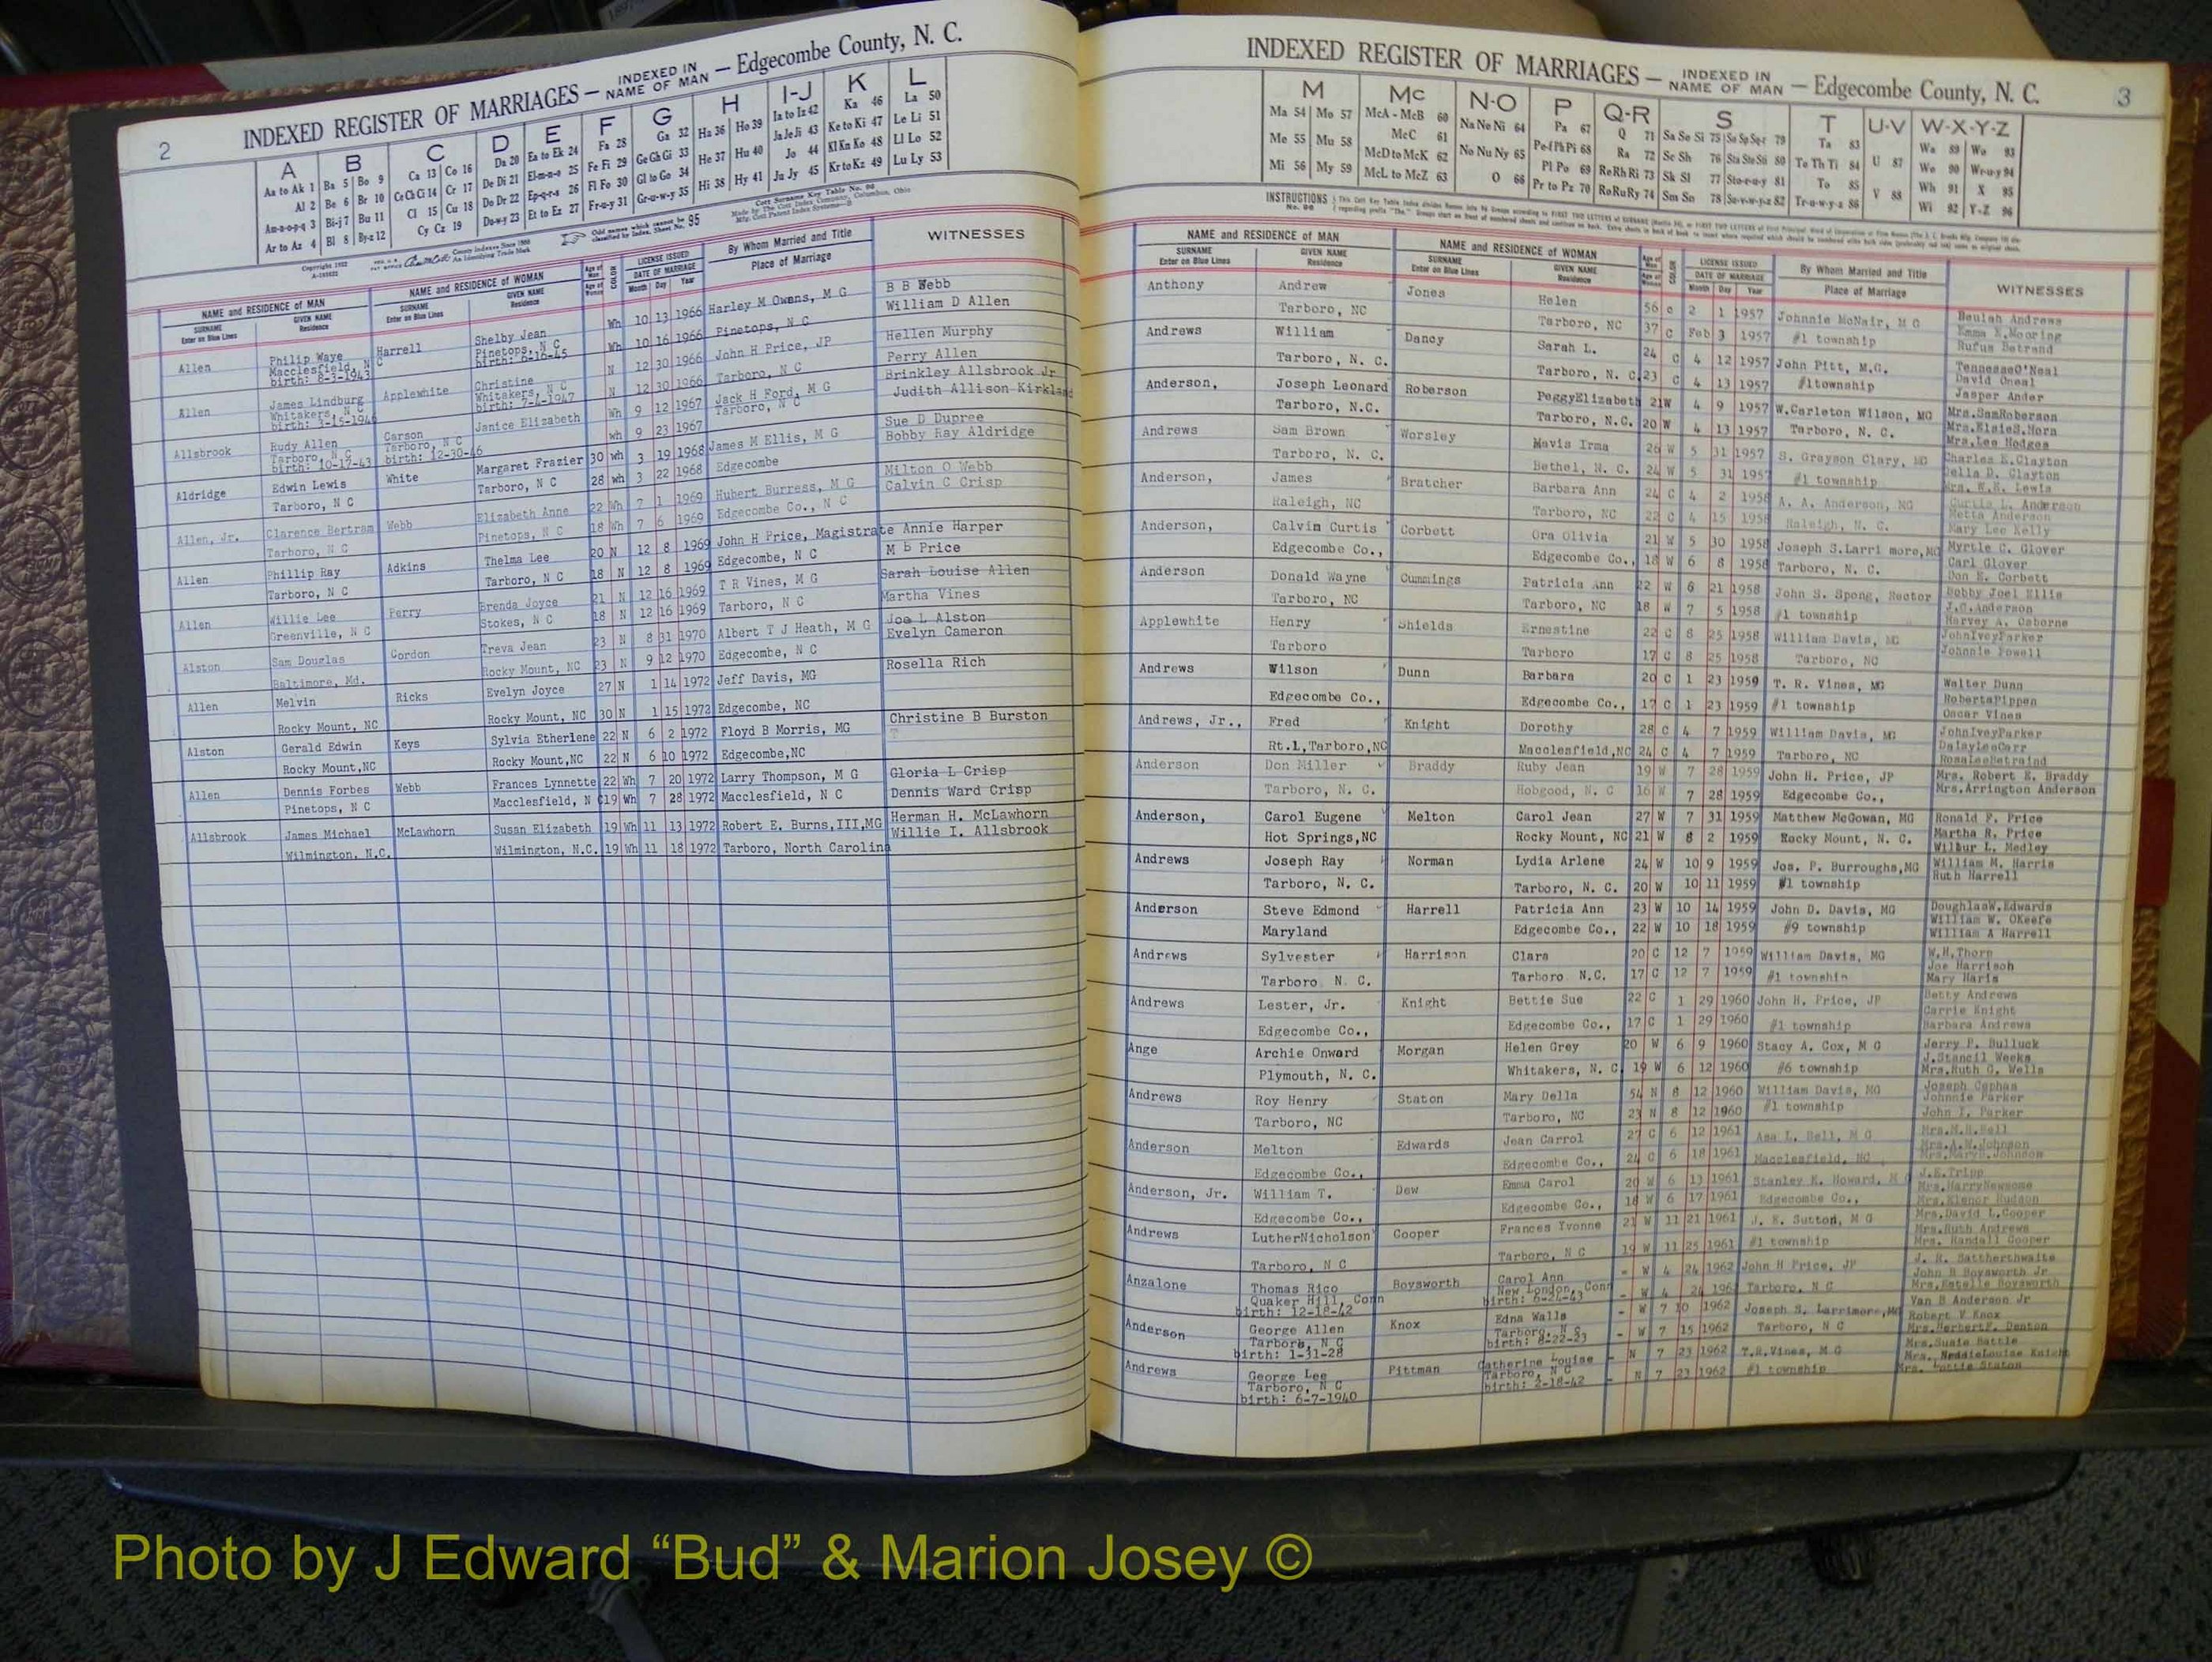 2
INDEXED REGISTER OF MARRIAGES — INDEXED IN NAME OF MAN — Edgecombe County, N. C.
A B C D E F G H I-J K L
Aa to Ak 1 Ba 5 Bo 9 Ca 13 Co 16 Da 20 Ea to Ek 24 Fa 28 Ga 32 Ha 36 Ho 39 Ia to Iz 42 Ka 46 La 50
Al 2 Be 6 Br 10 Ce Ch Ci 14 Cr 17 De Di 21 El-m-n-o 25 Fe Fi 29 Ge Gh Gi 33 He 37 Hu 40 Ja Je Ji 43 Ke to Ki 47 Le Li 51
Am-n-o-p-q 3 Bi-j 7 Bu 11 Cl 15 Cu 18 Do Dr 22 Ep-q-r-s 26 Fl Fo 30 Gl to Go 34 Hi 38 Hy 41 Jo 44 Kl Kn Ko 48 Ll Lo 52
Ar to Az 4 Bl 8 By-z 12 Cy Cz 19 Du-w-y 23 Et to Ez 27 Fr-u-y 31 Gr-u-w-y 35 Ju Jy 45 Kr to Kz 49 Lu Ly 53
NAME and RESIDENCE of MAN NAME and RESIDENCE of WOMAN COLOR LICENSE ISSUED By Whom Married and Title WITNESSES
SURNAME GIVEN NAME SURNAME GIVEN NAME DATE OF MARRIAGE Place of Marriage
Enter on Blue Lines Residence Enter on Blue Lines Residence Month Day Year
Allen Philip Waye Harrell Shelby Jean Wh 10 13 1966 Harley M Owens, M G B B Webb
Macclesfield, N C Pinetops, N C Wh 10 16 1966 Pinetops, N C William D Allen
birth: 8-3-1943 birth: 6-16-45
Allen James Lindburg Applewhite Christine N 12 30 1966 John H Price, JP Hellen Murphy
Whitakers, N C Whitakers, N C N 12 30 1966 Tarboro, N C Perry Allen
birth: 3-15-1946 birth: 7-4-1947
Allsbrook Rudy Allen Carson Janice Elizabeth Wh 9 12 1967 Jack H Ford, M G Brinkley Allsbrook Jr
Tarboro, N C Tarboro, N C wh 9 23 1967 Tarboro, N C Judith Allison Kirkland
birth: 10-17-43 birth: 12-30-46
Aldridge Edwin Lewis White Margaret Frazier 30 wh 3 19 1968 James M Ellis, M G Sue D Dupree
Tarboro, N C Tarboro, N C 28 wh 3 22 1968 Edgecombe Bobby Ray Aldridge
Allen, Jr. Clarence Bertram Webb Elizabeth Anne 22 Wh 7 1 1969 Hubert Burress, M G Milton O Webb
Tarboro, N C Pinetops, N C 18 Wh 7 6 1969 Edgecombe Co., N C Calvin C Crisp
Allen Phillip Ray Adkins Thelma Lee 20 N 12 8 1969 John H Price, Magistrate Annie Harper
Tarboro, N C Tarboro, N C 18 N 12 8 1969 Edgecombe, N C M b Price
Allen Willie Lee Perry Brenda Joyce 21 N 12 16 1969 T R Vines, M G Sarah Louise Allen
Greenville, N C Stokes, N C 18 N 12 16 1969 Tarboro, N C Martha Vines
Alston Sam Douglas Gordon Treva Jean 23 N 8 31 1970 Albert T J Heath, M G Joe L Alston
Baltimore, Md. Rocky Mount, NC 23 N 9 12 1970 Edgecombe, N C Evelyn Cameron
Allen Melvin Ricks Evelyn Joyce 27 N 1 14 1972 Jeff Davis, MG Rosella Rich
Rocky Mount, NC Rocky Mount, NC 30 N 1 15 1972 Edgecombe, NC
Alston Gerald Edwin Keys Sylvia Etherlene 22 N 6 2 1972 Floyd B Morris, MG Christine B Burston
Rocky Mount,NC Rocky Mount,NC 22 N 6 10 1972 Edgecombe,NC
Allen Dennis Forbes Webb Frances Lynnette 22 Wh 7 20 1972 Larry Thompson, M G Gloria L Crisp
Pinetops, N C Macclesfield, N C 19 Wh 7 28 1972 Macclesfield, N C Dennis Ward Crisp
Allsbrook James Michael McLawhorn Susan Elizabeth 19 Wh 11 13 1972 Robert E. Burns,III,MG Herman H. McLawhorn
Wilmington, N.C. Wilmington, N.C. 19 Wh 11 18 1972 Tarboro, North Carolina Willie I. Allsbrook
INDEXED REGISTER OF MARRIAGES — INDEXED IN NAME OF MAN — Edgecombe County, N. C. 3
M Mc N-O P Q-R S T U-V W-X-Y-Z
Ma 54 Mo 57 McA - McB 60 Na Ne Ni 64 Pa 67 Q 71 Sa Se Si 75 Ta 83 Wa 89 Wo 93
Me 55 Mu 58 McC 61 No Nu Ny 65 Pe-f Ph Pi 68 Ra 72 Sc Sh 76 Te Th Ti 84 U 87 We 90 Wr-u-y 94
Mi 56 My 59 McD to McK 62 O 66 Pl Po 69 Re Rh Ri 73 Sk Sl 77 To 85 V 88 Wh 91 X 95
McL to McZ 63 Pr to Pz 70 Ro Ru Ry 74 Sm Sn 78 Tr-u-w-y-z 86 Wi 92 Y-Z 96
NAME and RESIDENCE OF MAN NAME and RESIDENCE of WOMAN COLOR LICENSE ISSUED By Whom Married and Title WITNESSES
SURNAME GIVEN NAME SURNAME GIVEN NAME DATE OF MARRIAGE Place of Marriage
Enter on Blue Lines Residence Enter on Blue Lines Residence Month Day Year
Anthony Andrew Jones Helen 56 c 2 1 1957 Johnnie McNair, M G Beulah Andrews
Tarboro, NC Tarboro, NC 37 C Feb 3 1957 #1 township Emma E.Mooring
Andrews William Dancy Sarah L. 24 C 4 12 1957 John Pitt, M.G.
Tarboro, N. C. Tarboro, N. C. 23 C 4 13 1957 #1township David Oneal
Anderson, Joseph Leonard Roberson PeggyElizabeth 21 W 4 9 1957 W.Carleton Wilson, MG Mrs.SamRoberson
Tarboro, N.C. Tarboro, N.C. 20 W 4 13 1957 Tarboro, N. C. Mrs.ElsieS.Horn
Mrs.Lee Hedges
Andrews Sam Brown Worsley Mavis Irma 26 W 5 31 1957 S. Grayson Clary, MG Charles E.Clayton
Tarboro, N. C. Bethel, N. C. 24 W 5 31 1957 #1 township Della D. Clayton
Anderson, James Bratcher Barbara Ann 24 C 4 2 1958 A. A. Anderson, MG Curtis L. Anderson
Raleigh, NC Tarboro, NC 22 C 4 15 1958 Raleigh, N. C. Metta Anderson
Mary Lee Kelly
Anderson, Calvin Curtis Corbett Ora Olivia 21 W 5 30 1958 Joseph S.Larri more,MG Myrtle C. Glover
Edgecombe Co., Edgecombe Co., 18 W 6 8 1958 Tarboro, N. C. Carl Glover
Don E. Corbett
Anderson Donald Wayne Cummings Patricia Ann 22 W 6 21 1958 John S. Spong, Rector Bobby Joel Ellis
Tarboro, NC Tarboro, NC 18 W 7 5 1958 #1 township J.C.Anderson
Harvey A. Osborne
Applewhite Henry Shields Ernestine 22 C 8 25 1958 William Davis, MG JohnIveyParker
Tarboro Tarboro 17 C 8 25 1958 Tarboro, NC Johnnie Powell
Andrews Wilson Dunn Barbara 20 C 1 23 1959 T. R. Vines, MG Walter Dunn
Edgecombe Co., Edgecombe Co., 17 C 1 23 1959 #1 township RobertaPippen
Oscar Vines
Andrews, Jr., Fred Knight Dorothy 28 C 4 7 1959 William Davis, MG JohnIveyParker
Rt.1,Tarboro,NC Macclesfield,NC 24 C 4 7 1959 Tarboro, NC
Anderson Don Miller Braddy Ruby Jean 19 W 7 28 1959 John H. Price, JP Mrs. Robert E. Braddy
Tarboro, N. C. Hobgood, N. C 16 W 7 28 1959 Edgecombe Co., Mrs.Arrington Anderson
Anderson, Carol Eugene Melton Carol Jean 27 W 7 31 1959 Matthew McGowan, MG Ronald F. Price
Hot Springs,NC Rocky Mount, NC 21 W 8 2 1959 Rocky Mount, N. C. Martha R. Price
Wilbur L. Medley
Andrews Joseph Ray Norman Lydia Arlene 24 W 10 9 1959 Jos. P. Burroughs,MG William M. Harris
Tarboro, N. C. Tarboro, N. C. 20 W 10 11 1959 #1 township Ruth Harrell
Anderson Steve Edmond Harrell Patricia Ann 23 W 10 14 1959 John D. Davis, MG DoughlasW.Edwards
Maryland Edgecombe Co., 22 W 10 18 1959 #9 township William W. OKeefe
William A Harrell
Andrews Sylvester Harrison Clara 20 C 12 7 1959 William Davis, MG W.H.Thorp
Tarboro N. C. Tarboro N.C. 17 C 12 7 1959 #1 township Joe Harrison
Mary Haris
Andrews Lester, Jr. Knight Bettie Sue 22 C 1 29 1960 John H. Price, JP Betty Andrews
Edgecombe Co., Edgecombe Co., 17 C 1 29 1960 #1 township Carrie Knight
Barbara Andrews
Ange Archie Onward Morgan Helen Grey 20 W 6 9 1960 Stacy A. Cox, M G Jerry P. Bulluck
Plymouth, N. C. Whitakers, N. C. 19 W 6 12 1960 #6 township J.Stancil Weeks
Mrs.Ruth G. Wells
Andrews Roy Henry Staton Mary Della 54 N 8 12 1960 William Davis, MG Joseph Cephas
Tarboro, NC Tarboro, NC 23 N 8 12 1960 #1 township Johnnie Parker
John I. Parker
Anderson Melton Edwards Jean Carrol 27 C 6 12 1961 Asa L. Bell, M G Mrs.M.H.Bell
Edgecombe Co., Edgecombe Co., 24 C 6 18 1961 Macclesfield, NC Mrs.A.W.Johnson
Mrs.MaryE.Johnson
Anderson, Jr. William T. Dew Emma Carol 20 W 6 13 1961 Stanley E. Howard, M G J.E.Tripp
Edgecombe Co., Edgecombe Co., 18 W 6 17 1961 Edgecombe Co., Mrs.HarryNewsome
Mrs.Elenor Hudson
Andrews LutherNicholson Cooper Frances Yvonne 21 W 11 21 1961 J. E. Sutton, M G Mrs.David L.Cooper
Tarboro, N C Tarboro, N C 19 W 11 25 1961 #1 township Mrs.Ruth Andrews
Mrs. Randall Cooper
Anzalone Thomas Rico Boysworth Carol Ann - W 4 24 1962 John H Price, JP J. R. Satherthwaite
Quaker Hill, Conn New London, Conn - W 4 24 196 Tarboro, N C John B Boysworth Jr
birth: 12-18-42 birth: 6-24-43 Mrs.Estelle Boysworth
Anderson George Allen Knox Edna Walls - W 7 10 1962 Joseph S. Larrimore,MG Van B Anderson Jr
Tarboro, N C Tarboro, N C - W 7 15 1962 Tarboro, N C Robert V Knox
birth: 1-31-28 birth: 8-22-23 Mrs.HerbertF. Denton
Andrews George Lee Pittman Catherine Louise - N 7 23 1962 T.R.Vines, M G Mrs.Susie Battle
Tarboro, N C Tarboro, N C - N 7 23 1962 #1 township
birth: 6-7-1940 birth: 2-18-42 Mrs. Lottie Staton
Photo by J Edward “Bud” & Marion Josey ©